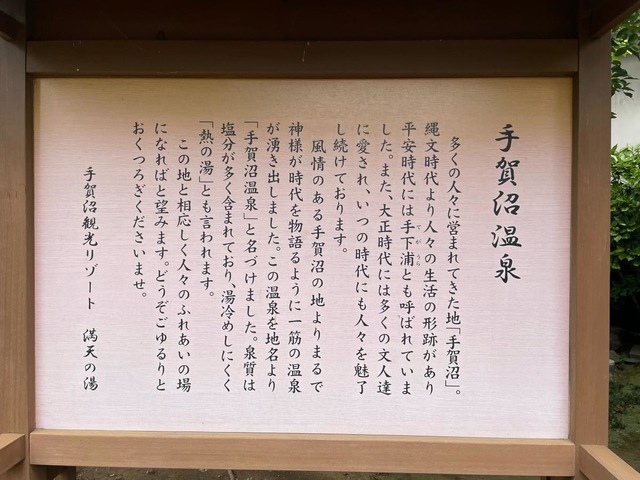 手賀沼温泉
多くの人々に営まれてきた地「手賀沼」。
縄文時代より人々の生活の形跡があり
平安時代には手下浦とも呼ばれていま
した。また、大正時代には多くの文人達
に愛され、いつの時代にも人々を魅了
し続けております。
風情のある手賀沼の地よりまるで
神様が時代を物語るように一筋の温泉
が湧き出しました。この温泉を地名より
「手賀沼温泉」と名づけました。泉質は
塩分が多く含まれており、湯冷めしにくく
「熱の湯」とも言われます。
この地と相応しく人々のふれあいの場
になればと望みます。どうぞごゆるりと
おくつろぎくださいませ。
手賀沼観光リゾート 満天の湯